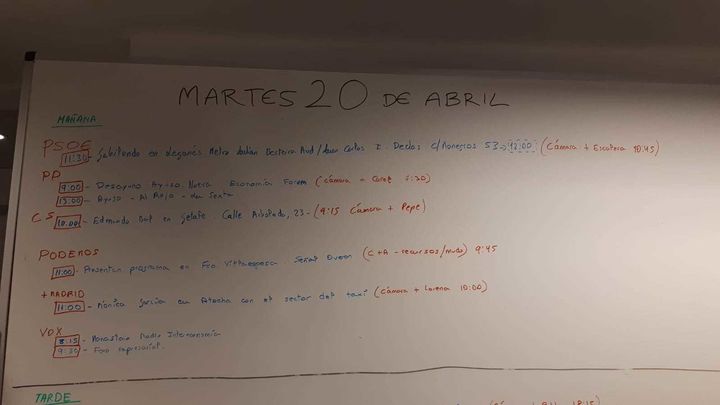 MARTES 20 DE ABRIL
MAÑANA
PSOE
11:30 - Gabilondo en Leganés Metro Julián Besteiro Avd/Juan Carlos I. Declas C/Monegros 53 → 12:00 (Cámara + Escolera 10.45)
PP
9:00 - Desayuno Ayuso Nueva Economía Forum (Cámara + :30)
13:00 - Ayuso - Al Rojo - La Sexta
CS
10:00 - Edmundo Bal en Getafe. Calle 23 - (9:15 Cámara + Pepe)
PODEMOS
11:00 - Presentan programa en Fco. Villaespesa Señal (C+A - recursos/mudo) 9:45
+MADRID
11:00 - Mónica García en Atocha con el sector del taxi (Cámara + Lorena 10:00)
VOX
8:15 - Monasterio Radio Intereconomía
9:30 - Foro empresarial.
TARDE
18:15)